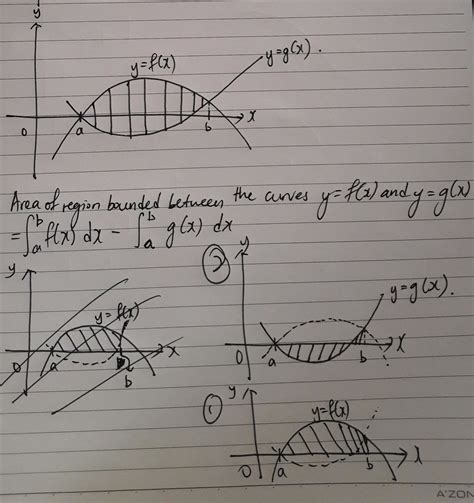 y
y=f(x)
y=g(x).
0 a b x
Area of region bounded between the curves y=f(x) and y=g(x)
=∫ₐᵇ f(x) dx - ∫ₐᵇ g(x) dx
y
y=f(x)
0 a b x
② y
y=g(x).
0 a b x
① y
y=f(x)
0 a b x
A'ZON